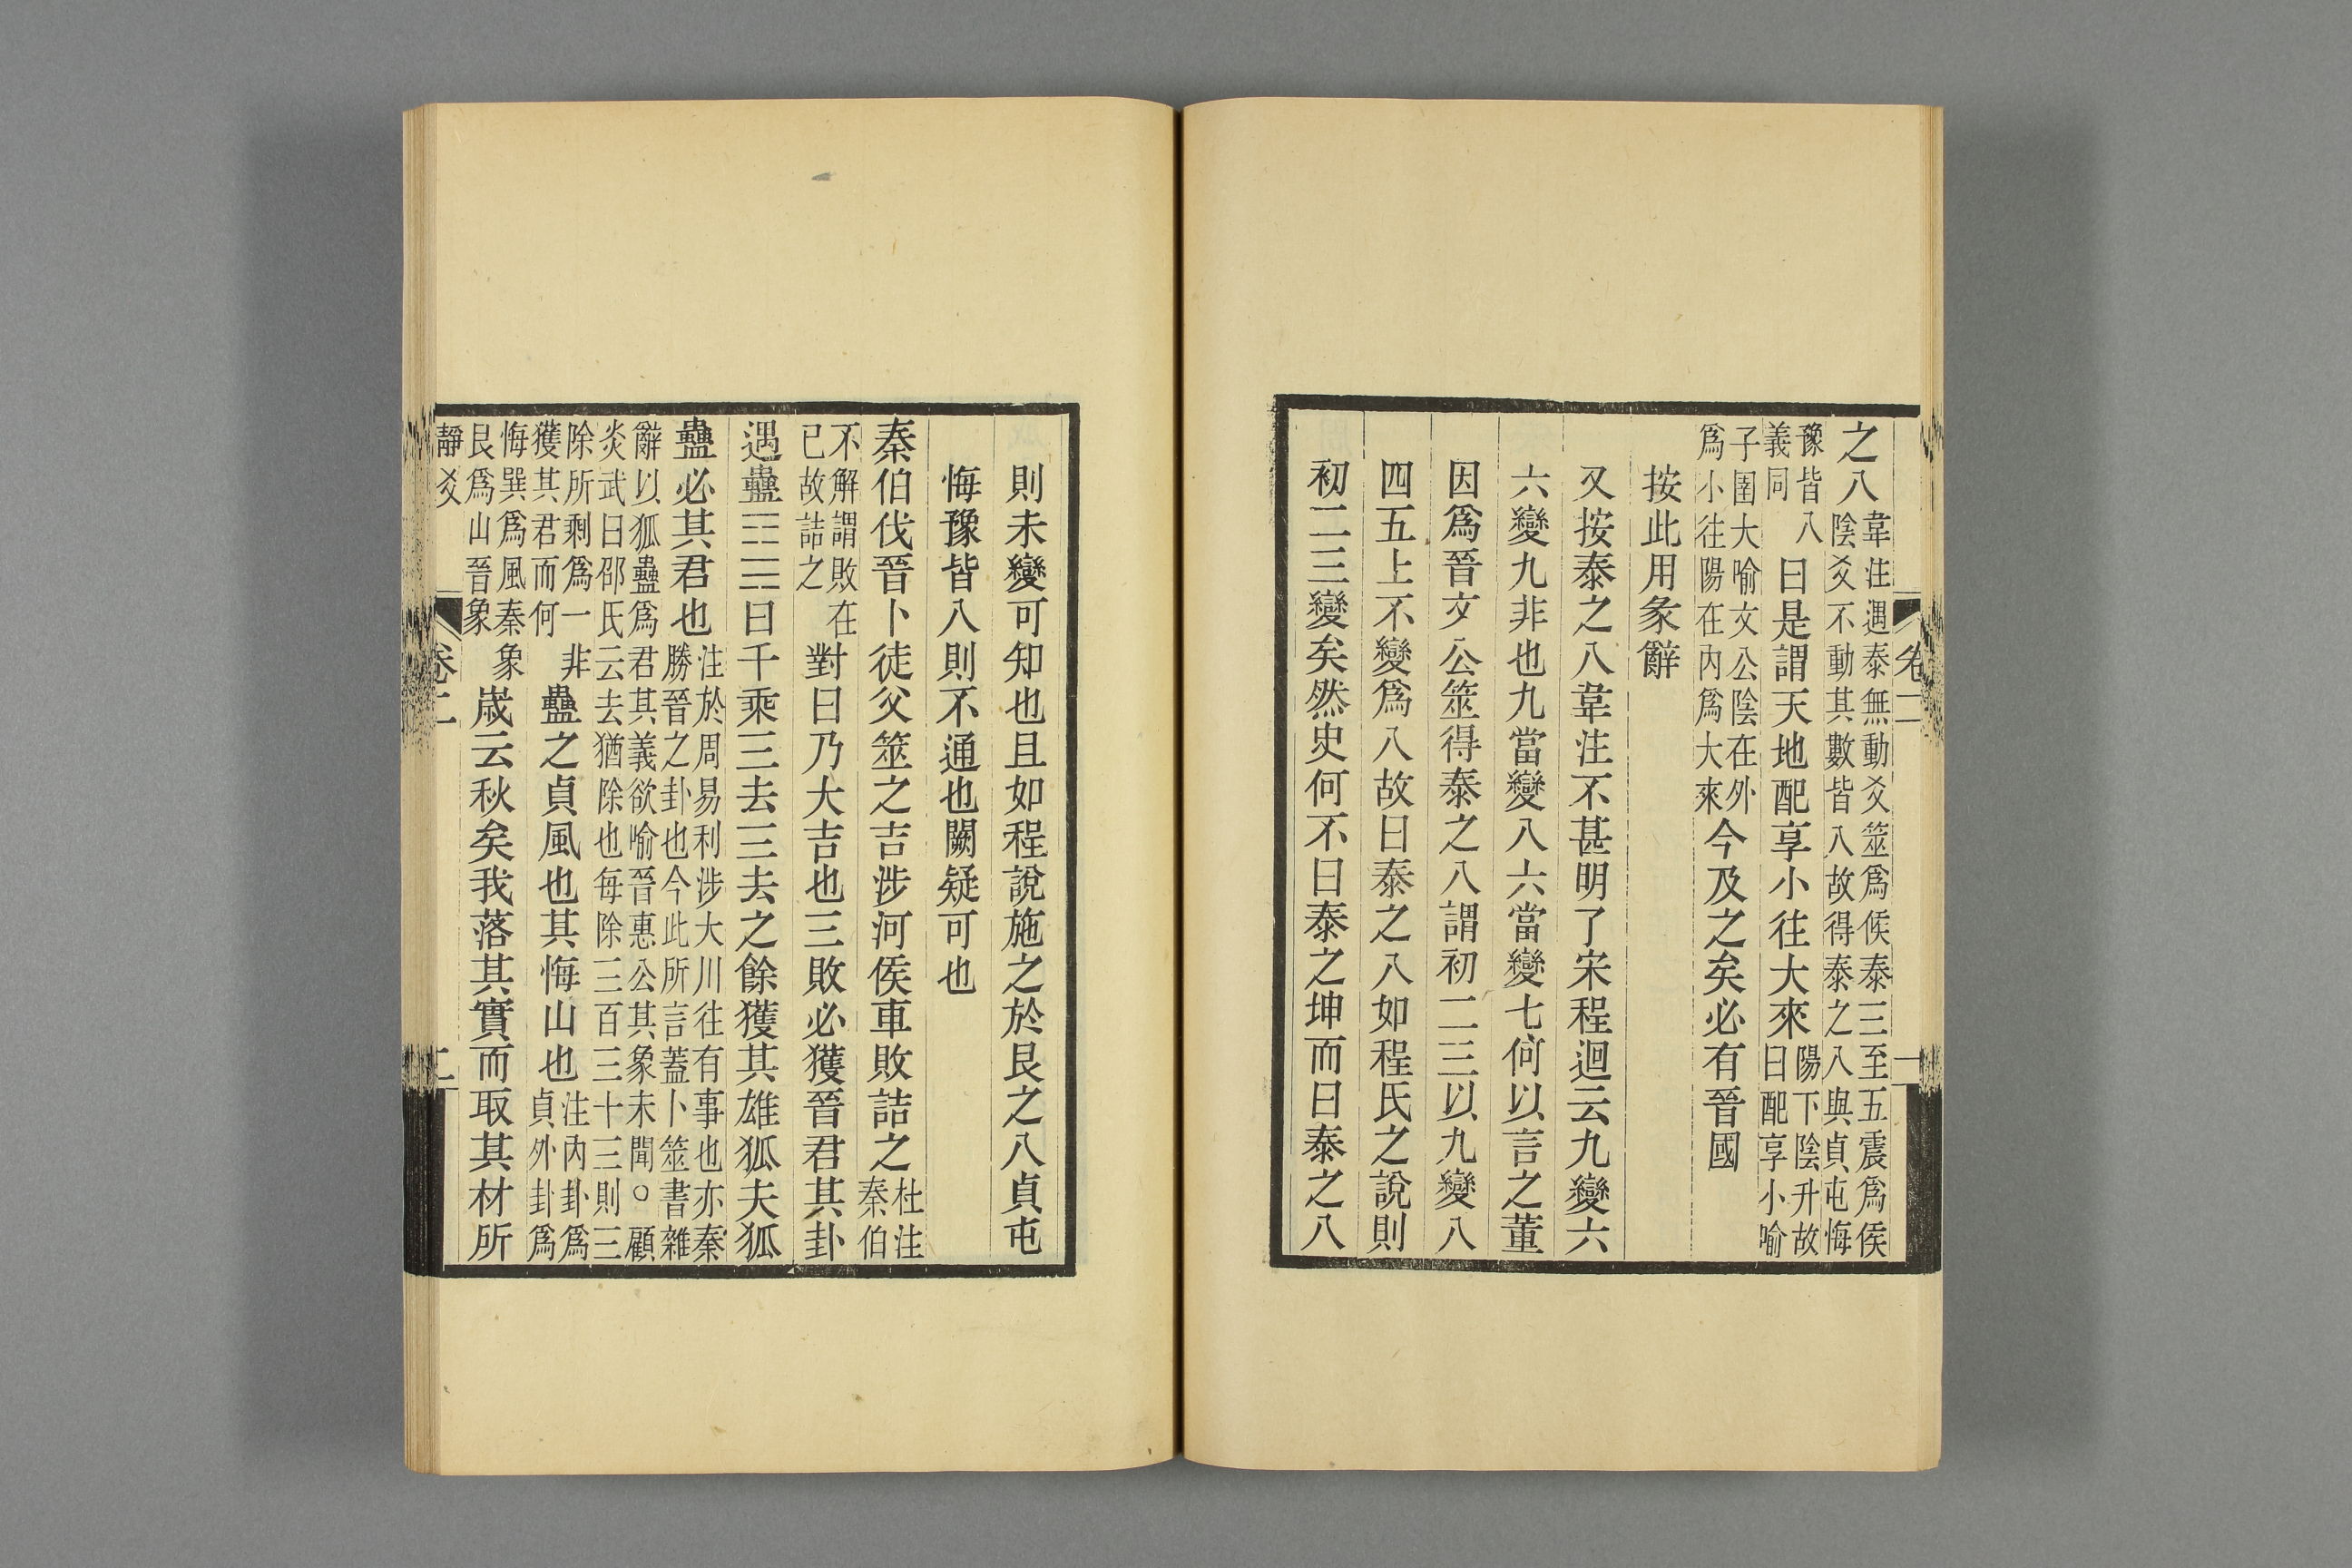 之八韋注遇泰無動爻筮爲侯泰三至五震爲侯
陰爻不動其數皆八故得泰之八與貞屯悔
豫皆八
義同
曰是謂天地配享小往大來陽下陰升故
曰配享小喻
子圉大喻文公陰在外
爲小往陽在內爲大來
今及之矣必有晉國
按此用彖辭
又按泰之八韋注不甚明了宋程迴云九變六
六變九非也九當變八六當變七何以言之董
因爲晉文公筮得泰之八謂初二三以九變八
四五上不變爲八故曰泰之八如程氏之說則
初二三變矣然史何不曰泰之坤而曰泰之八
則未變可知也且如程說施之於艮之八貞屯
悔豫皆八則不通也闕疑可也
秦伯伐晉卜徒父筮之吉涉河侯車敗詰之杜注
秦伯
不解謂敗在
已故詰之
對曰乃大吉也三敗必獲晉君其卦
遇蠱䷑曰千乘三去三去之餘獲其雄狐夫狐
蠱必其君也注於周易利涉大川往有事也亦秦
勝晉之卦也今此所言蓋卜筮書雜
辭以狐蠱爲君其義欲喻晉惠公其象未聞○顧
炎武曰邵氏云去猶除也每除三百三十三則三
除所剩爲一非
獲其君而何
蠱之貞風也其悔山也注內卦爲
貞外卦爲
悔巽爲風秦象
艮爲山晉象
歲云秋矣我落其實而取其材所
靜爻 卷二